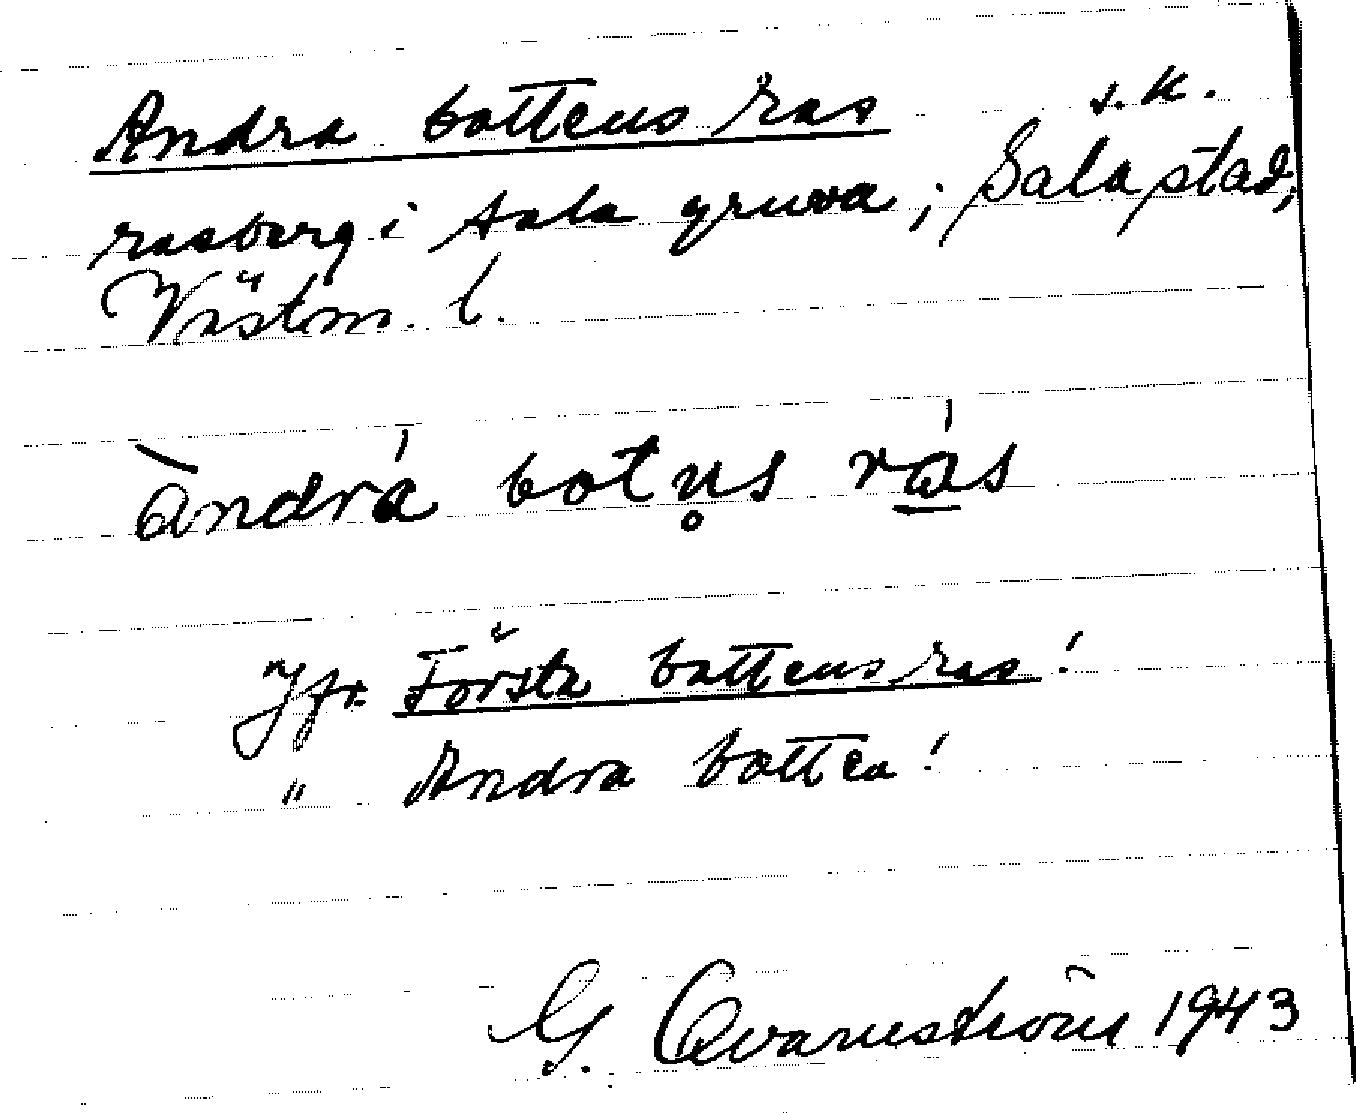 Andra bottens ras s.k.
rasberg i Sala gruva, Sala stad,
Västm. l.
àndrá botn̥s rá̱s
Jfr Första bottens ras!
" Andra botten!
G. Qvarnström 1943